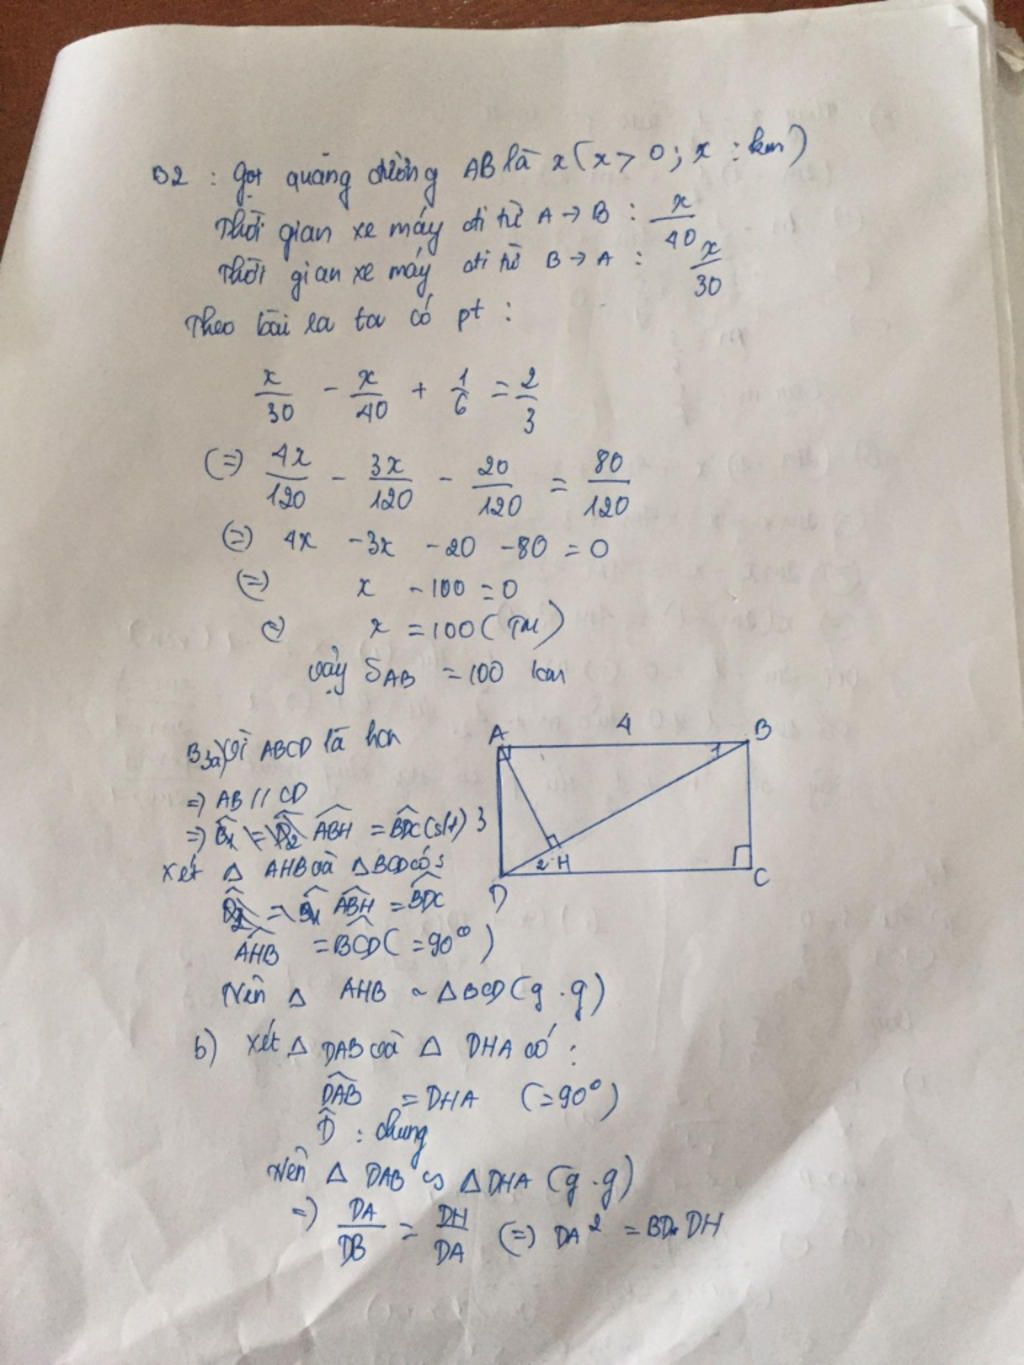 B2 : Gọi quãng đường AB là x (x > 0 ; x : km)
Thời gian xe máy đi từ A → B : x/40
Thời gian xe máy đi từ B → A : x/30
Theo bài ra ta có pt :
x/30 - x/40 + 1/6 = 2/3
(=) 4x/120 - 3x/120 - 20/120 = 80/120
(=) 4x - 3x - 20 - 80 = 0
(=) x - 100 = 0
(=) x = 100 (TM)
vậy SAB = 100 km
B3a) Vì ABCD là hcn
=) AB // CD
=) ABH = BDC (slt)
xét Δ AHB và Δ BCD có :
ABH = BDC
AHB = BCD (= 90°)
Nên Δ AHB ~ Δ BCD (g.g)
A 4 B
1
3
2 H
D C
b) xét Δ DAB và Δ DHA có :
DAB = DHA (= 90°)
D : chung
Nên Δ DAB ∽ Δ DHA (g.g)
=) DA/DB = DH/DA (=) DA² = BD. DH